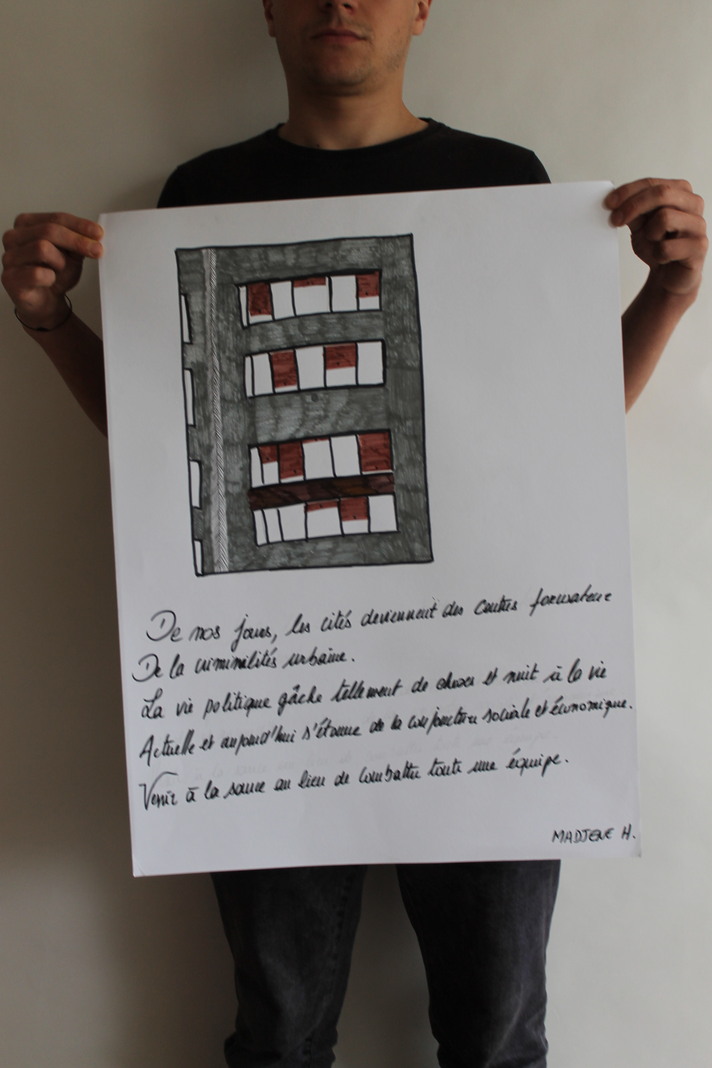 De nos jours, les cités deviennent des centres
De la criminalités urbaine.
La vie politique gâche tellement de choses et nuit à la vie
Actuelle et aujourd'hui s'étonne de la conjoncture sociale et économique.
Venir à la source au lieu de combattre toute une équipe.
H.